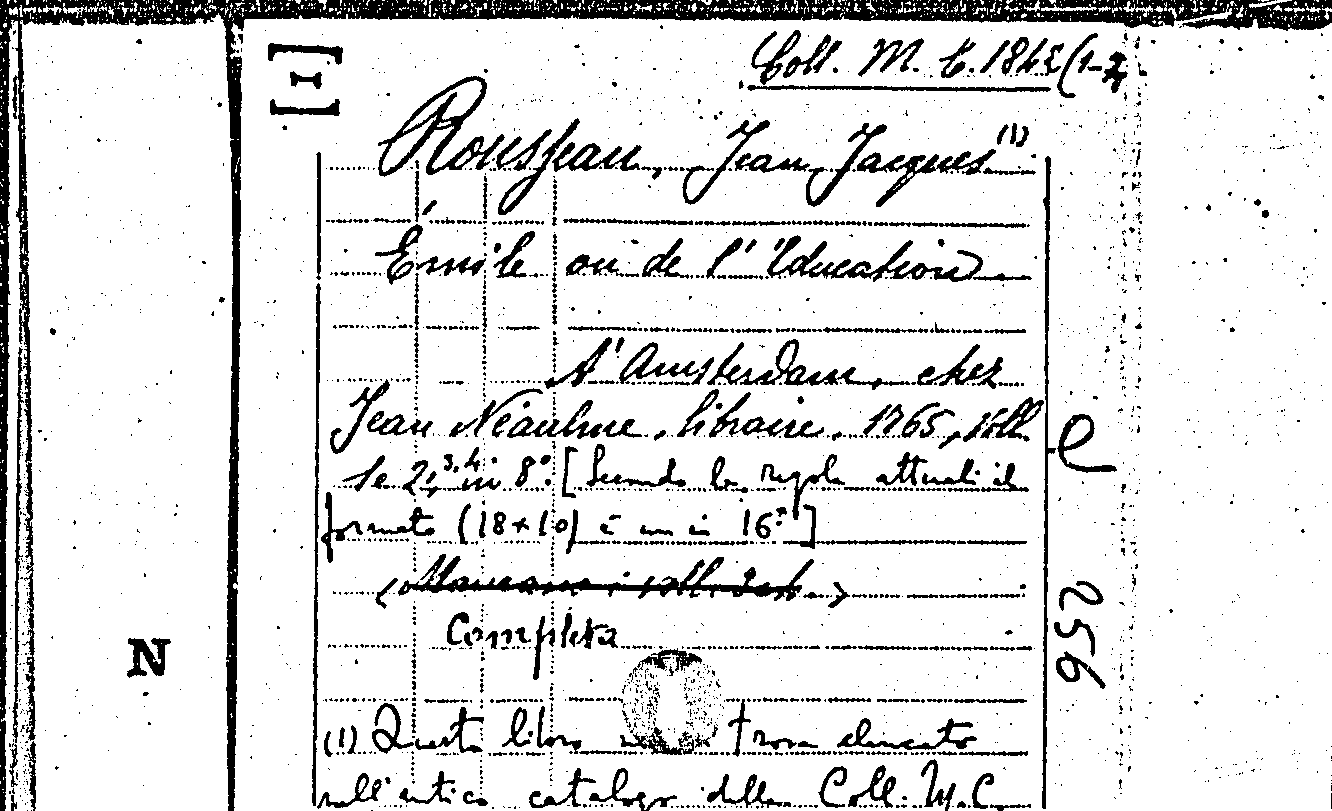 Coll. M. C. 184 (1-
Rousseau, Jean Jacques (1)
Émile ou de l'Education.
A' Amsterdam, chez
Jean Néaulme, libraire, 1765, voll.
1e 2, 3, 4, in 8°. [Secondo la regola attuale il
formato (18x10) è un in 16°.]
(Mancano i voll.
Completa
(1) Questo libro trova elencato
nell'antico catalogo della Coll. M. C.
e
N